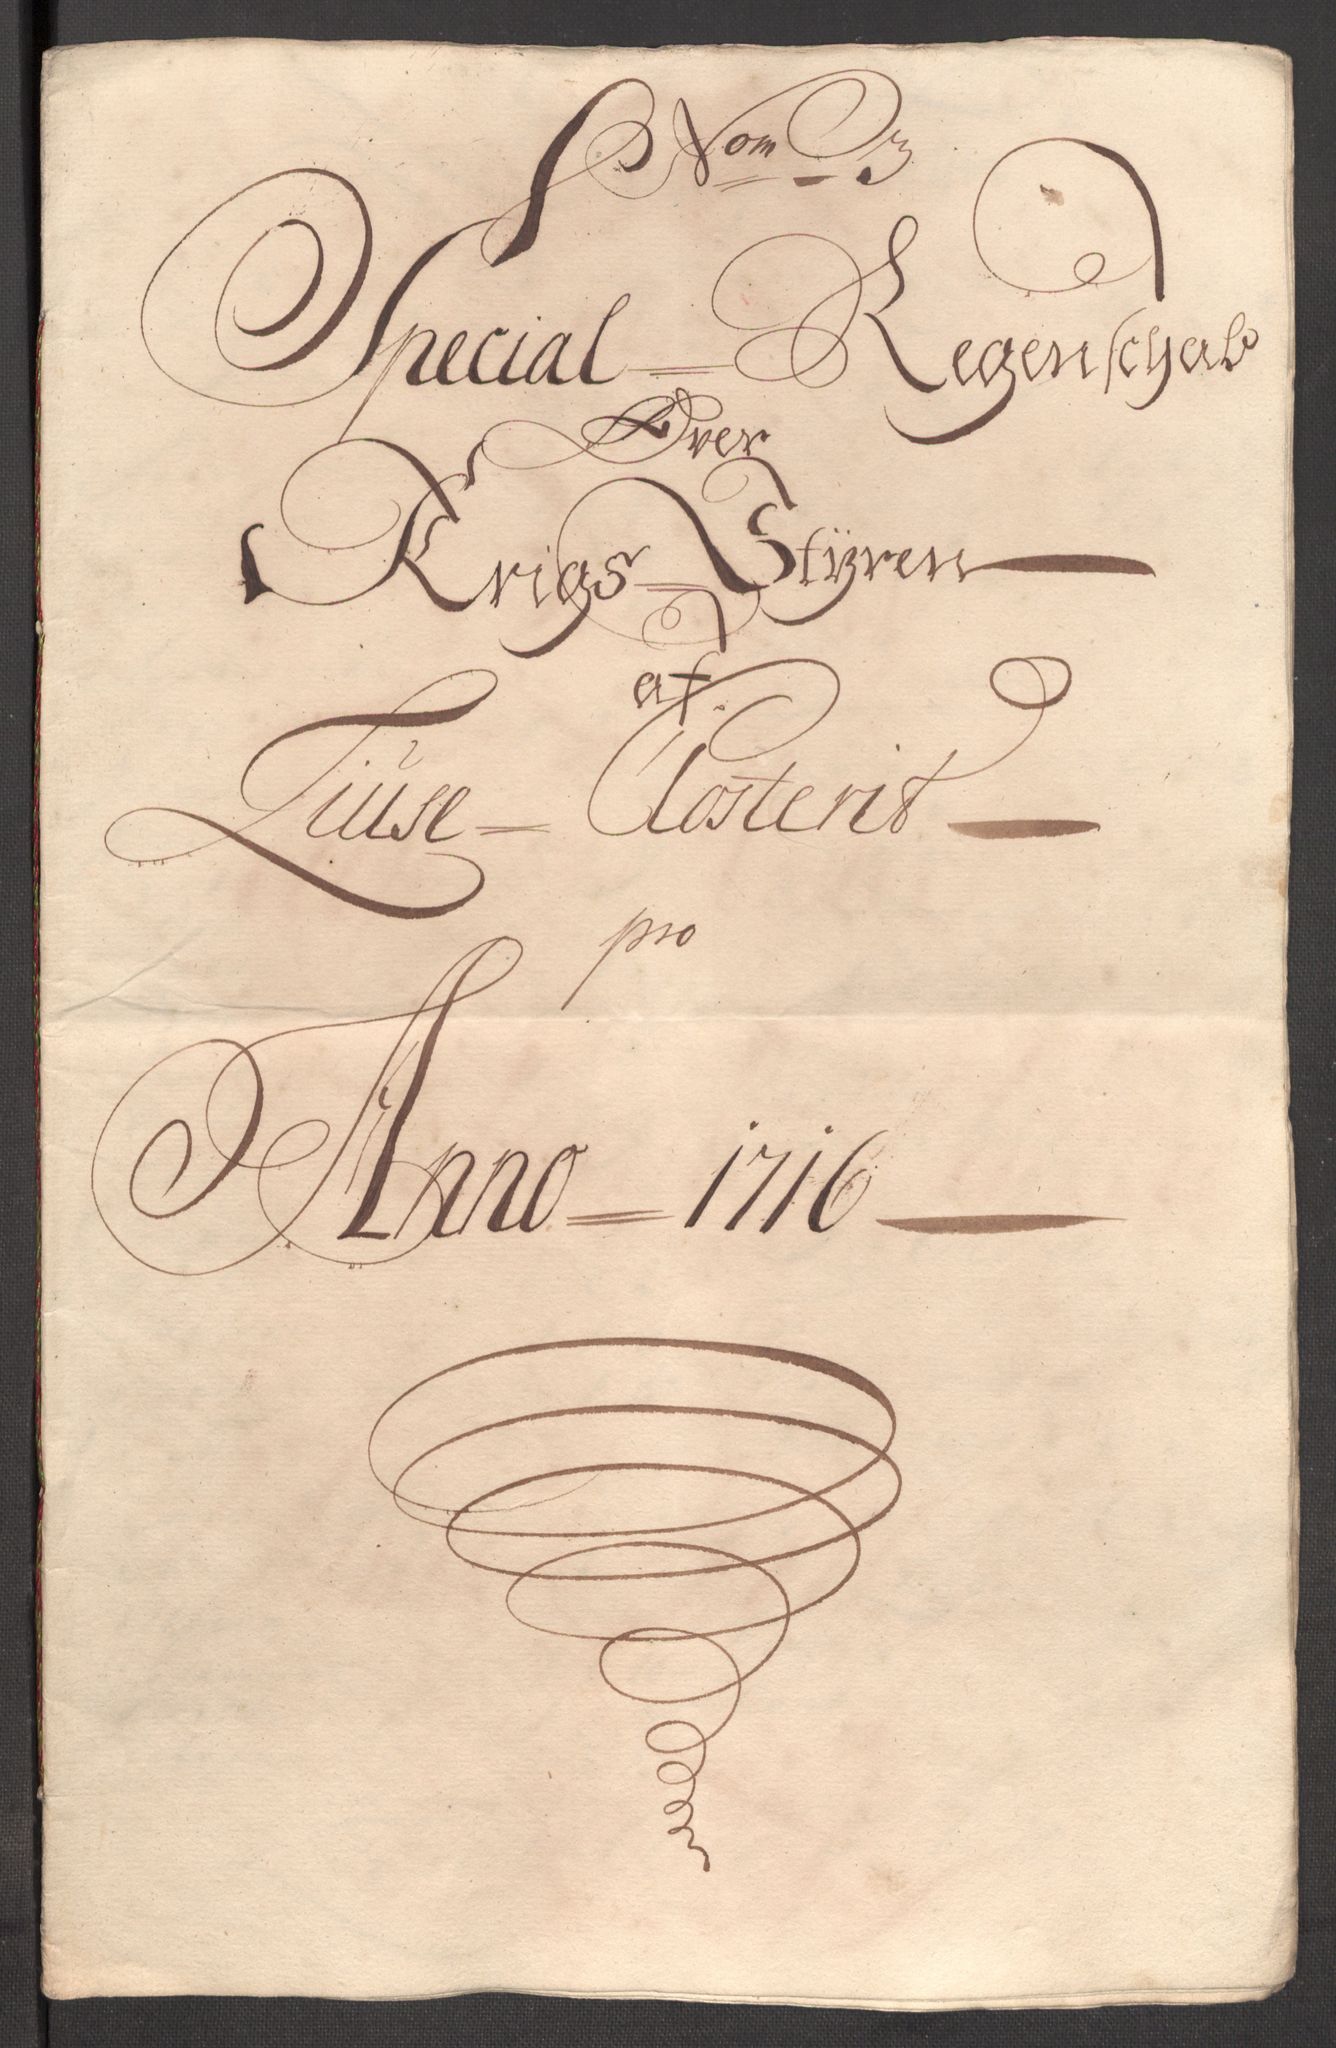 Nom 3
Special = Regenschab
Over
Krigs = Stÿren
af
Liuse = Closterit
pro
Anno = 1716